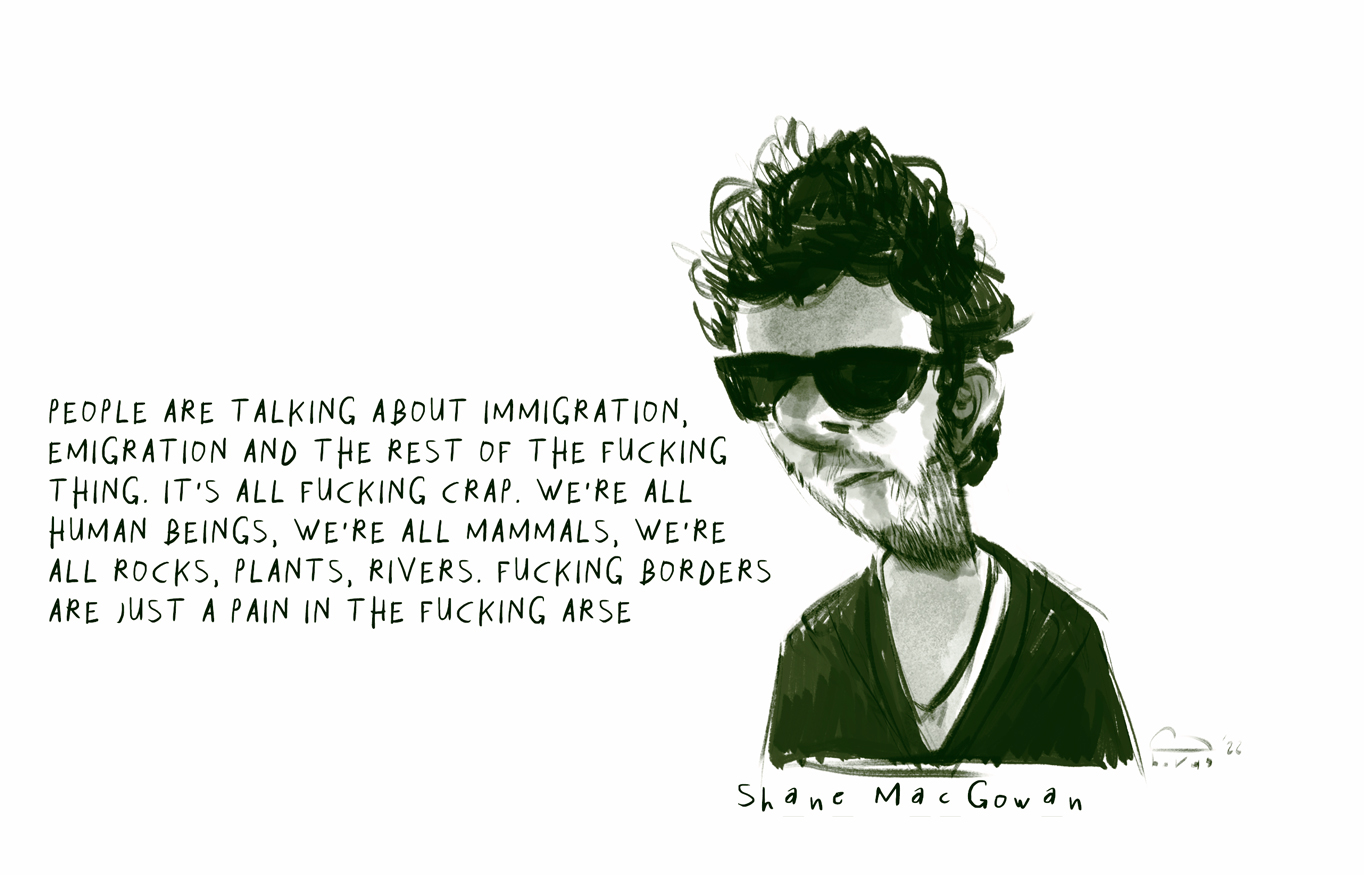 PEOPLE ARE TALKING ABOUT IMMIGRATION,
EMIGRATION AND THE REST OF THE FUCKING
THING. IT'S ALL FUCKING CRAP. WE'RE ALL
HUMAN BEINGS, WE'RE ALL MAMMALS, WE'RE
ALL ROCKS, PLANTS, RIVERS. FUCKING BORDERS
ARE JUST A PAIN IN THE FUCKING ARSE
Shane MacGowan